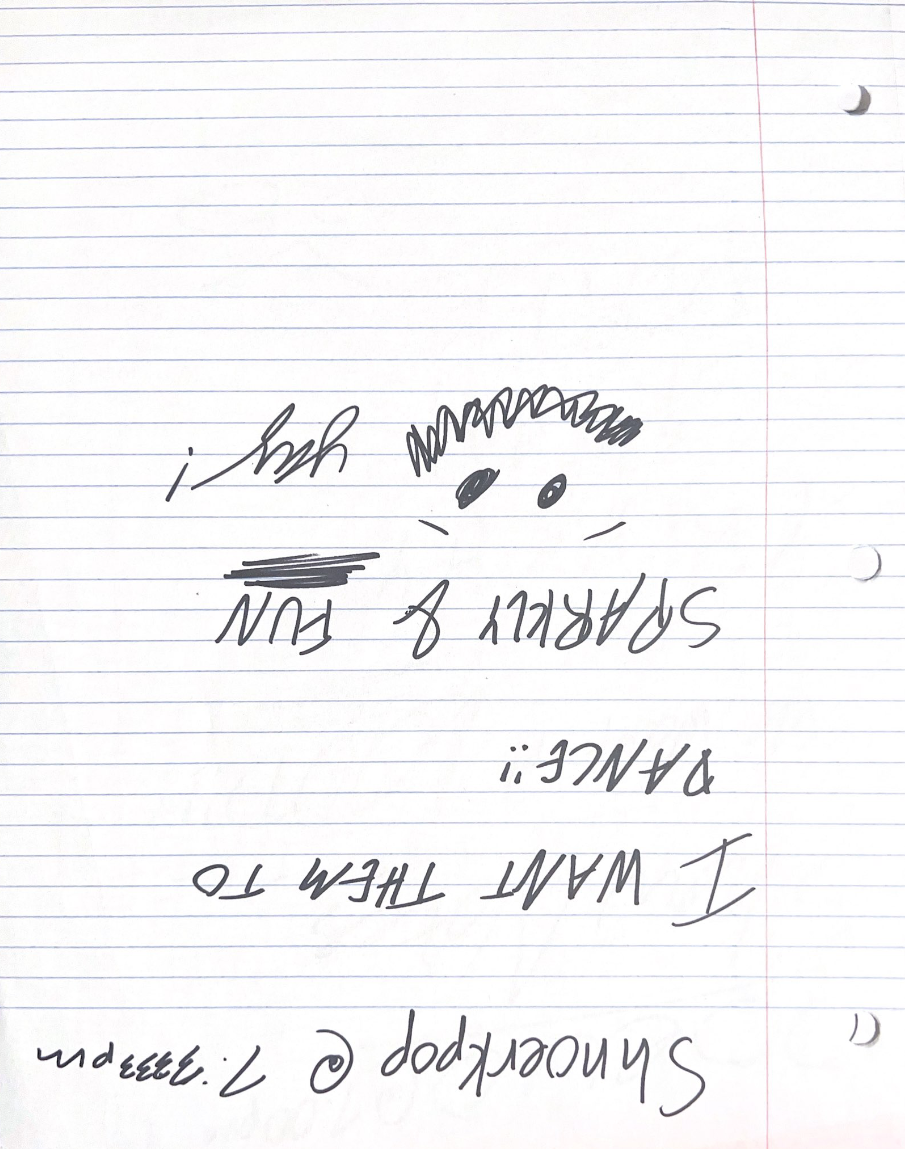 Shnoerkpop @ 7:3333pm
I WANT THEM TO
DANCE!!
SPARKLY & FUN
yay!